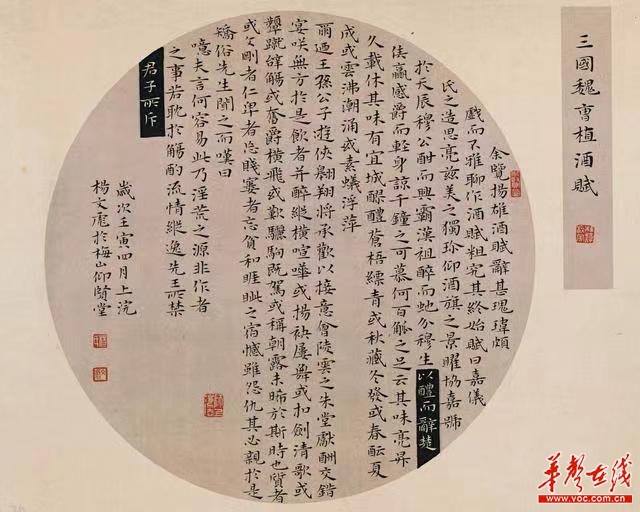 三國魏曹植酒賦
余覽揚雄酒賦辭甚瑰瑋頗
戲而不雅聊作酒賦粗究其終始賦曰嘉儀
氏之造思亮茲美之獨珍仰酒旗之景曜協嘉號
於天辰穆公酣而興霸漢祖醉而虵分穆生以醴而辭楚
侯嬴感爵而輕身諒千鍾之可慕何百觚之足云其味亮升
久載休其味有宜城醪醴蒼梧縹青或秋藏冬發或春醞夏
成或雲沸潮涌或素蟻浮萍
爾迺王孫公子遊俠翱翔將承歡以接意會陵雲之朱堂獻酬交錯
宴咲無方於是飲者並醉縱橫喧嘩或揚袂屢舞或扣劍清歌或
顰蹴辭觴或奮爵橫飛或歎驪駒既駕或稱朝露未晞於斯時也質者
或文剛者仁卑者忘賤窶者忘貧和睚眦之宿憾雖怨仇其必親於是
矯俗先生聞之而嘆曰
噫夫言何容易此乃淫荒之源非作者
之事若耽於觴酌流情縱逸先王所禁
君子所斥
歲次壬寅四月上浣
楊文虎於梅山仰賢堂
華聲在线
www.voc.com.cn